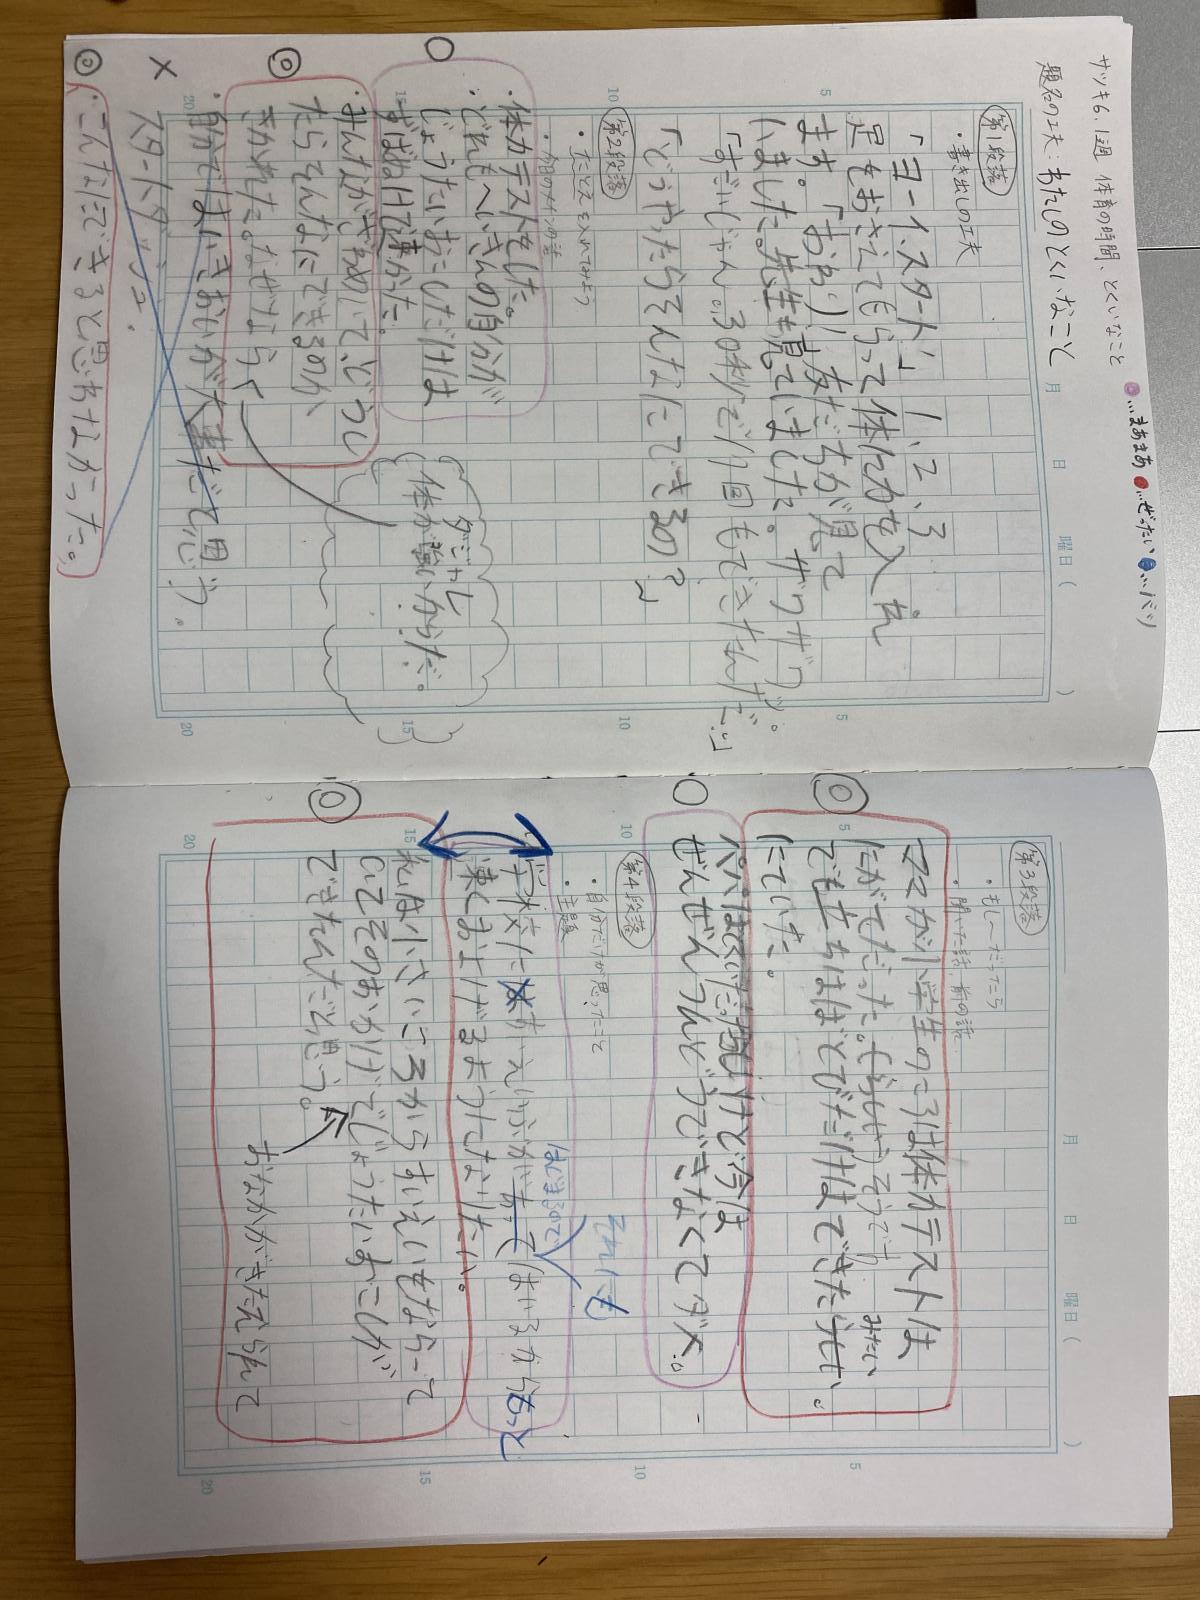 サツキ6.1週 体育の時間、とくいなこと
…まあまあ …ぜったい …バツ
題名の工夫：わたしのとくいなこと
月 日 曜日（ ）
第1段落
・書き出しの工夫
「ヨーイスタート」1、2、3
足をおさえてもらって体に力を入れ
ます。「おわり」友だちが見て
いました先生も見ていました。ザワザワ。
「すごいじゃん。30秒で
「どうやったらそんなにできるの？」
第2段落
・たとえを入れてみよう
・体力テストをした。
・どれもへいきんの自分が
じょうたいおこしだけは
ずばぬけて速かった。
みんながきゅうにどうし
たらそんなにできるのか
きかれた。なぜなら、
ダンャレ
体が強いからだ。
スタートダッシュ。
こんなにできると思わなかった。
月 日 曜日（ ）
第3段落
・もし〜だったら
・聞いた話、前の話
ママが小学生のころは体力テストは
にがてだった。
でも立ちはばとびだけはできた
みたい
にていた。
今は
ぜんぜんうんどうできなくてダメ。
第4段落
・自分だけが思ったこと
・主題
それにも
はじまるので
中学校に
はいるからもっと
速くおよげるようになりたい。
わたしは小さいころからすいえいもならって
いてそのおかげでじょうたいおこしが
できたんだと思う。
おなかがきたえられて